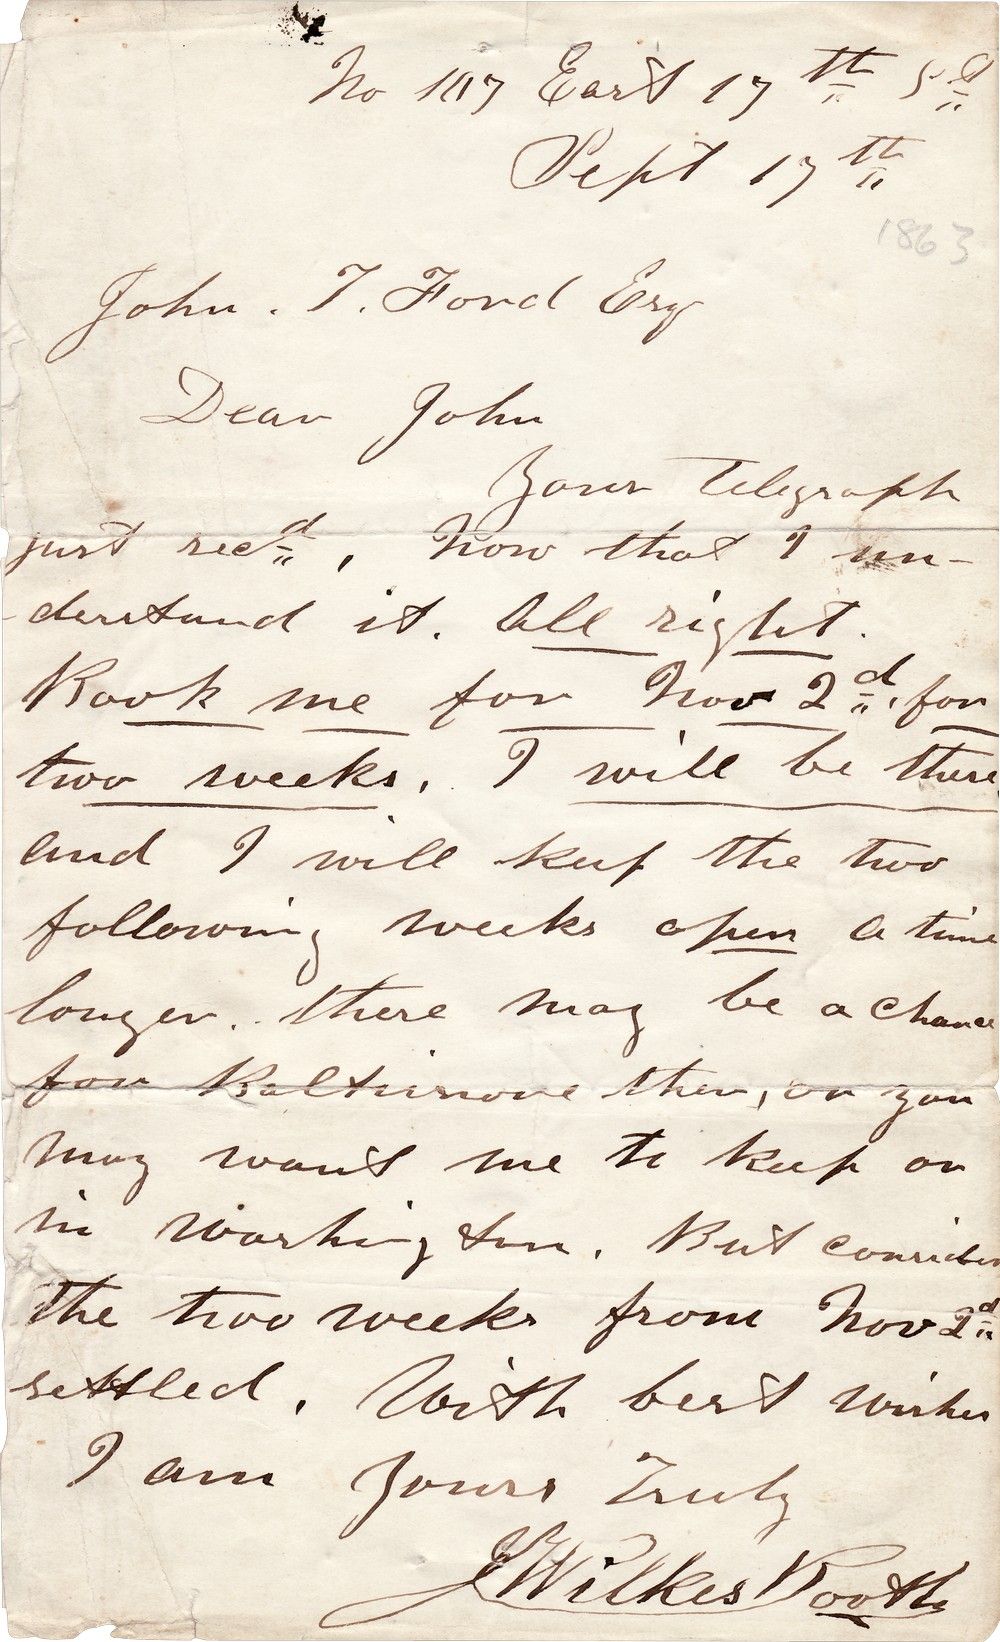 No 107 East 17th St
Sept 17th
1863
John. T. Ford Esq
Dear John
Your Telegraph
just recd, Now that I un-
derstand it. All right.
Book me for Nov 2d, for
two weeks. I will be there
and I will keep the two
following weeks open a time
longer. there may be a chance
for Baltimore then, or you
may want me to keep on
in Washington. But consider
the two weeks from Nov 2d
settled. With best wishes
I am Yours Truly
J Wilkes Booth